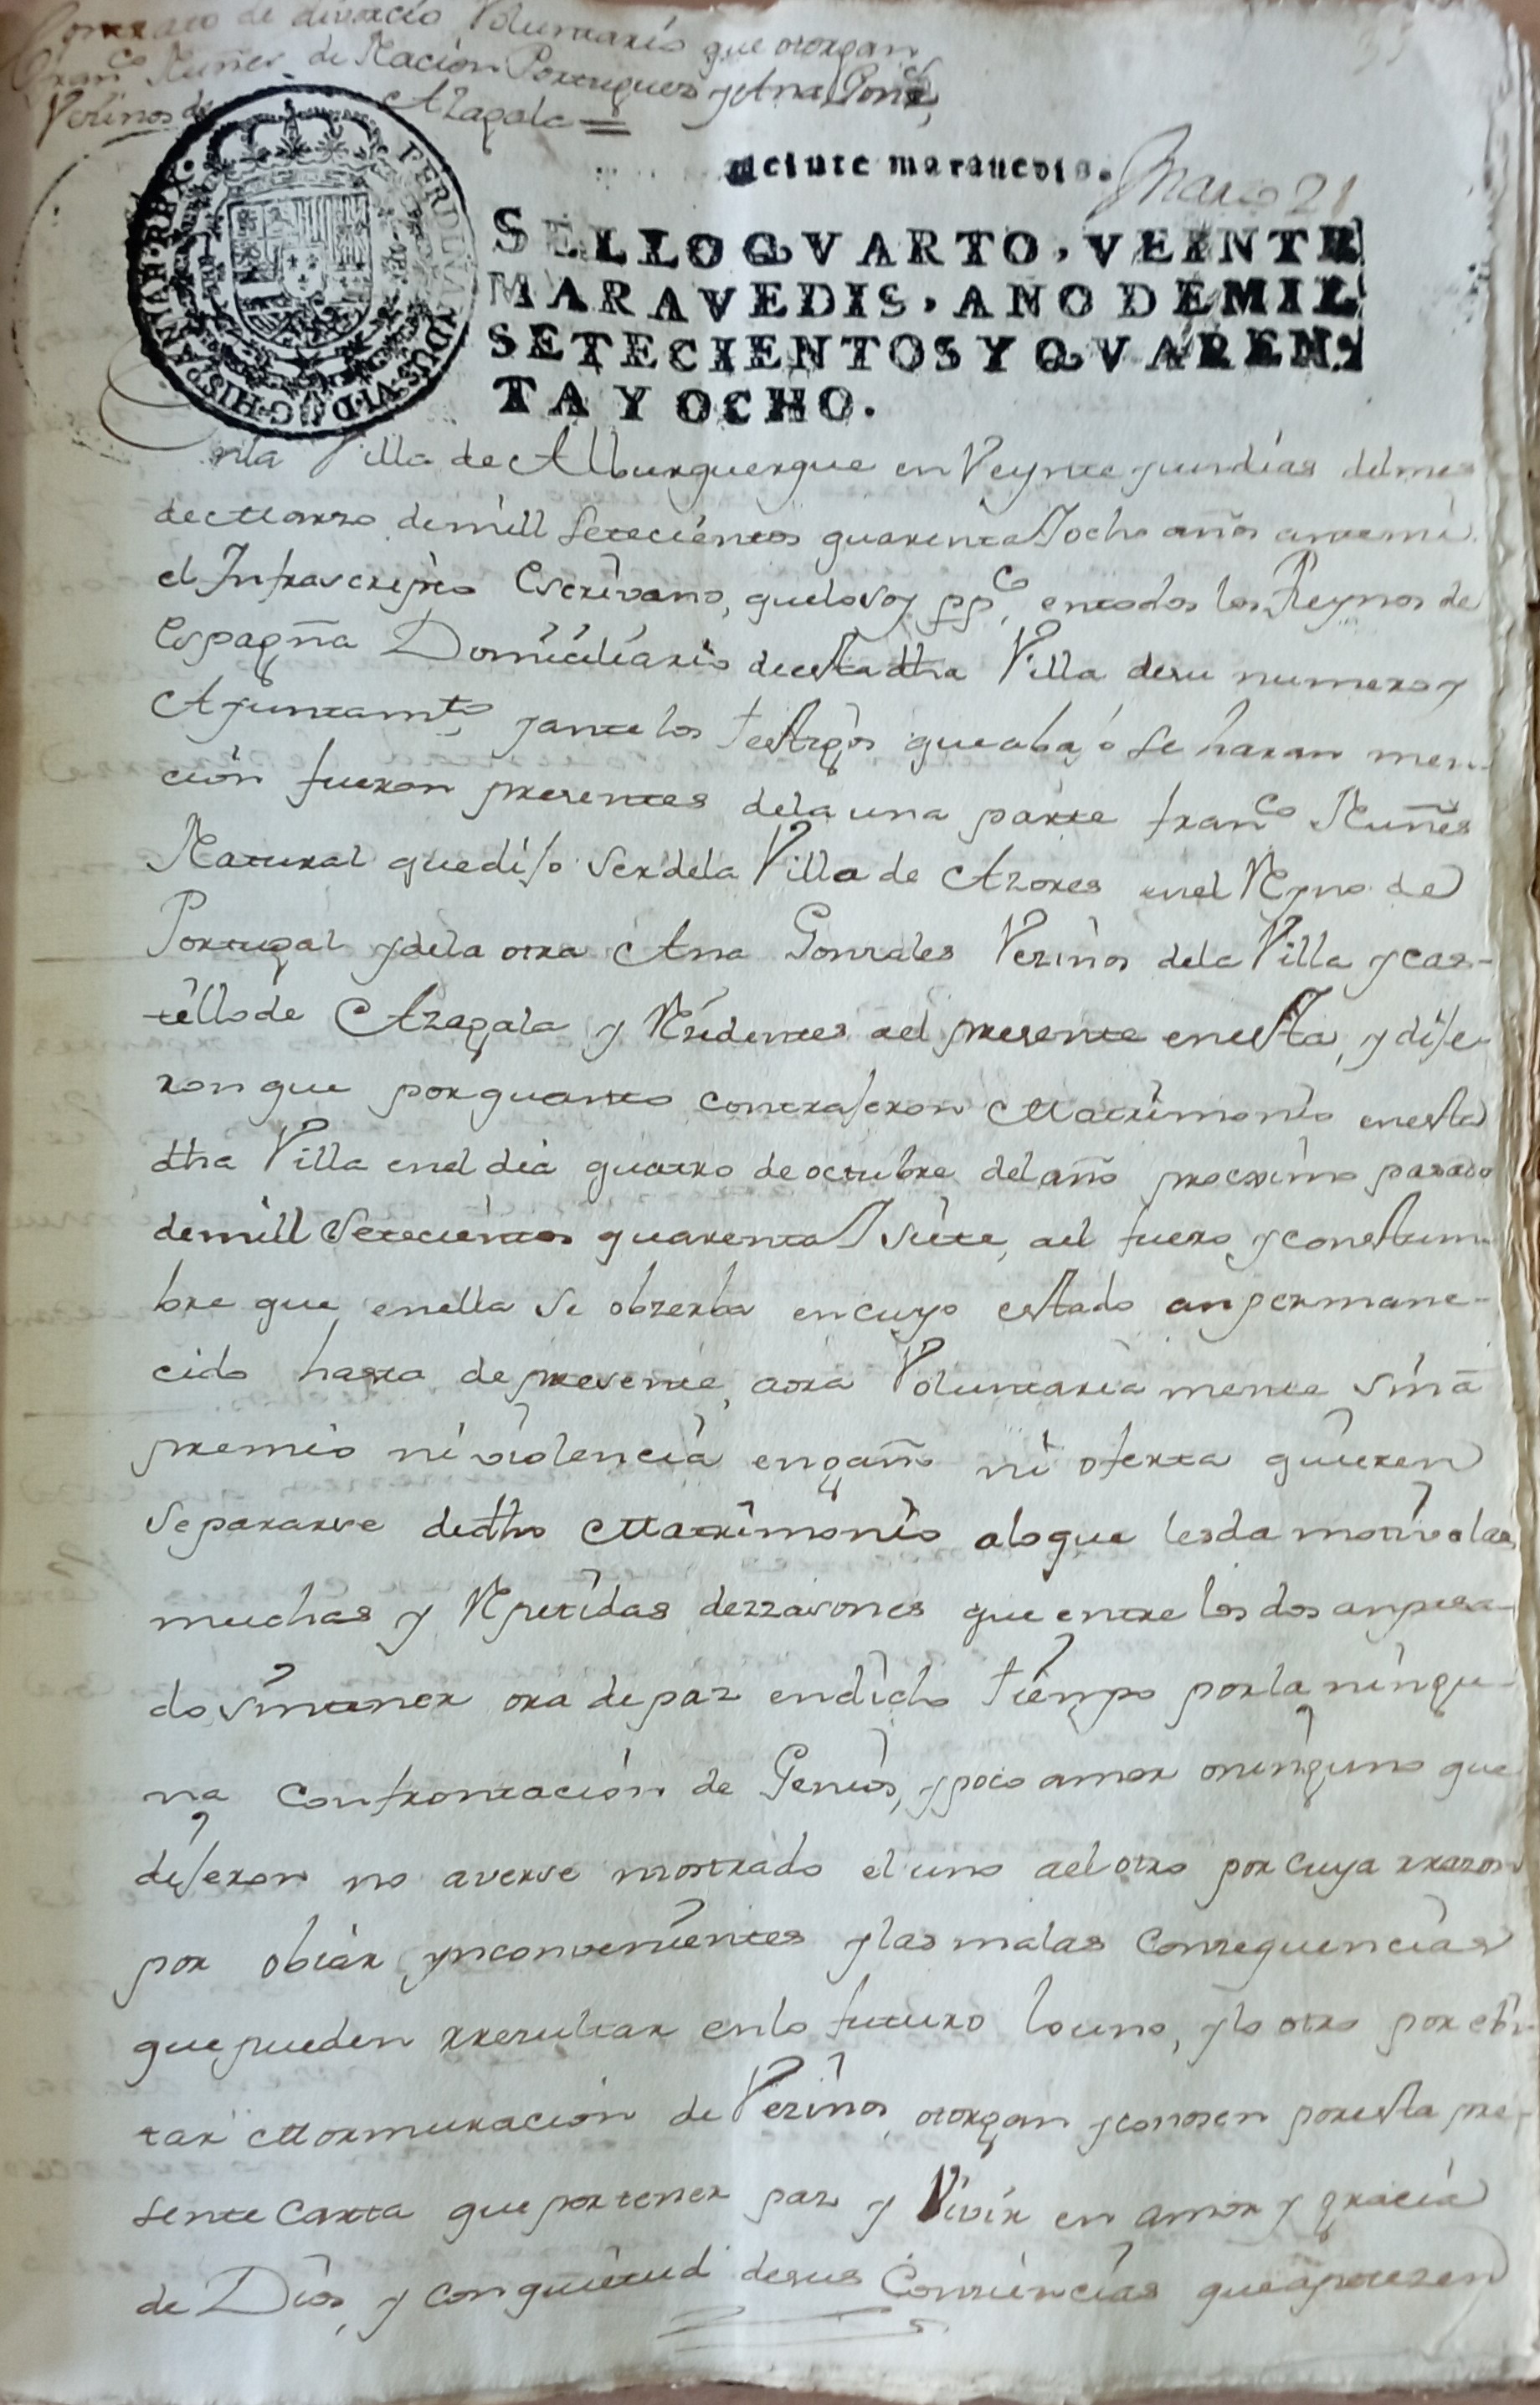 Contrato de divorcio Voluntario que otorgan
Franco Nuñes de Nacion Portugues y Ana Gonz
Vezinos de Azagala =
Veinte maravedis.
Marzo 21
SELLO QVARTO, VEINTE
MARAVEDIS, AÑO DE MIL
SETECIENTOS Y QVAREN-
TA Y OCHO.
FERDINANDUS · VI · D · G · HISPANIAR · REX ·
nla Villa de Alburquerque en Veynte y un dias del mes
de Marzo de mill setecientos quarenta Y ocho años antemi
el Infrascripto Escrivano, que lo soy ppco, en todos los Reynos de
Espagña Domiciliario de esta dha Villa de su numero y
Ajuntamto, y ante los testigos que abajo se haran men-
cion fueron presentes de la una parte franco Nuñes
Natural que dijo ser de la Villa de Azores en el Reyno de
Portugal y de la otra Ana Gonzales Vezinos de la Villa y cas-
tillo de Azagala y Residentes ael presente en esta, y dije-
ron que por quanto contrajeron Matrimonio en esta
dha Villa en el dia quatro de octubre del año procximo pasado
de mill Setecientos quarenta Y siete, ael fuero y constum-
bre que en ella se obzerba en cuyo estado an permane-
cido hasta de presente, aora Voluntaria mente sin a
premio ni violencia engaño ni oferta quieren
separarse de dho Matrimonio a lo que les da motivo las
muchas y Repetidas dezzasones que entre los dos an pasa-
do, sin tener ora de paz en dicho tiempo por la ningu-
na confrontacion de Genios, y poco amor o ninguno que
dijeron no averse mostrado el uno ael otro por cuya rrazon
por obiar ynconvenientes y las malas consequencias
que pueden rresultar en lo futuro lo uno, y lo otro por ebi-
tar Mormuracion de Vezinos, otorgan y conosen por esta pre-
sente Carta que por tener paz y Vivir en amor y gracia
de Dios, y con quietud de sus Conciencias que apetezen